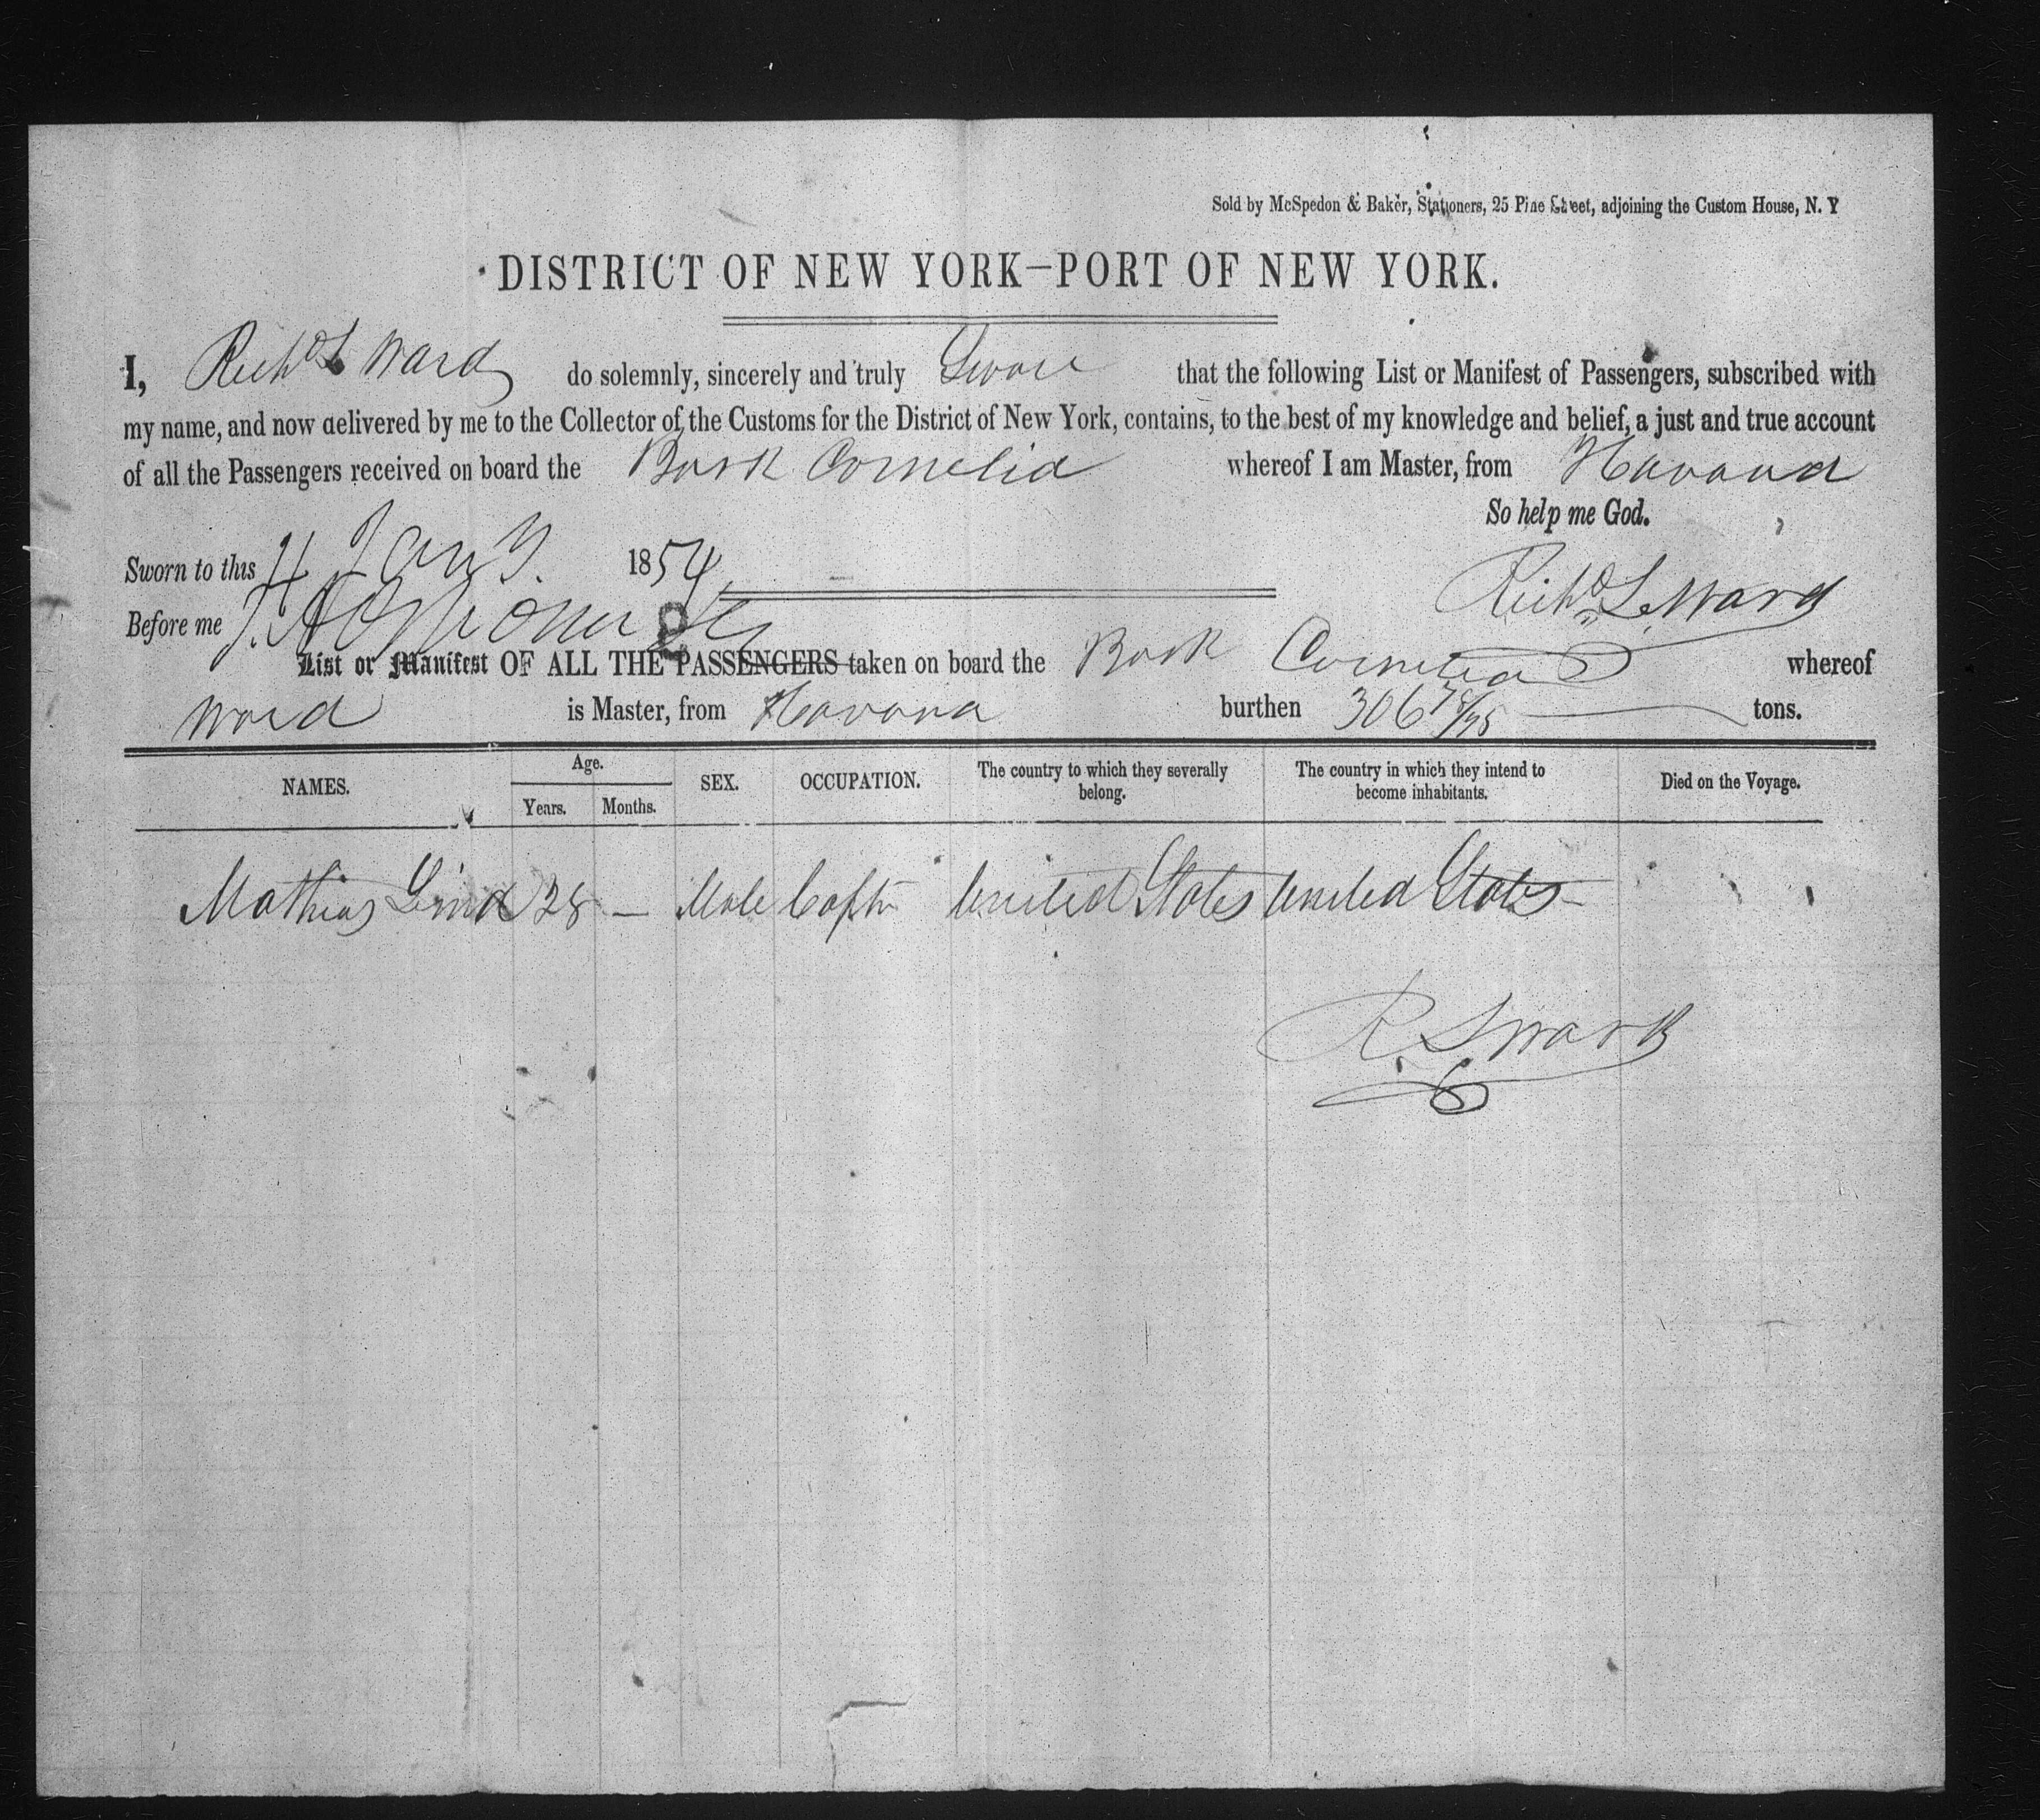 Sold by McSpedon & Baker, Stationers, 25 Pine Street, adjoining the Custom House, N. Y
DISTRICT OF NEW YORK—PORT OF NEW YORK.
I, Richd L Ward do solemnly, sincerely and truly Swear that the following List or Manifest of Passengers, subscribed with
my name, and now delivered by me to the Collector of the Customs for the District of New York, contains, to the best of my knowledge and belief, a just and true account
of all the Passengers received on board the Bark Cornelia whereof I am Master, from Havana
So help me God.
Sworn to this 4 Jany. 1854
Richd L Ward
Before me
8
List or Manifest OF ALL THE PASSENGERS taken on board the Bark Cornelia whereof
Ward is Master, from Havana burthen 306 tons.
NAMES. Age. SEX. OCCUPATION. The country to which they severally belong. The country in which they intend to become inhabitants. Died on the Voyage.
Years. Months.
Mathias Lind 28 — Male Captn United States United States
R. L Ward